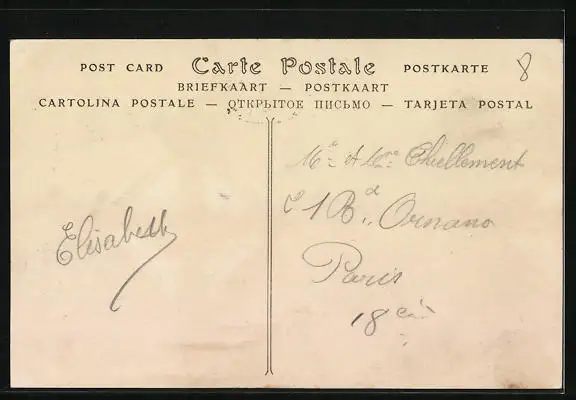 POST CARD Carte Postale POSTKARTE 8
BRIEFKAART — POSTKAART
CARTOLINA POSTALE — ОТКРЫТОЕ ПИСЬМО — TARJETA POSTAL
Elisabeth
Me et Mme
Bd Ornano
Paris
18e